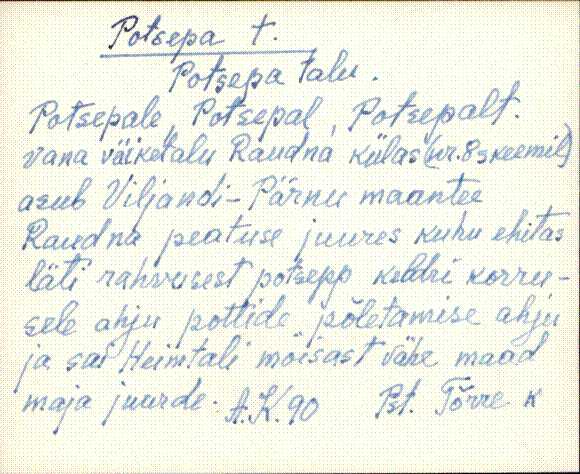 Potsepa t.
Potsepa talu.
Potsepale, Potsepal, Potsepalt.
vana väiketalu Raudna külas (nr. 8 skeemil)
asub Viljandi-Pärnu maantee
Raudna peatuse juures kuhu ehitas
läti rahvusest potsepp keldri korru-
sele ahju pottide põletamise ahju
ja sai Heimtali mõisast vähe maad
maja juurde. A.K. 90 Pst. Tõrre k